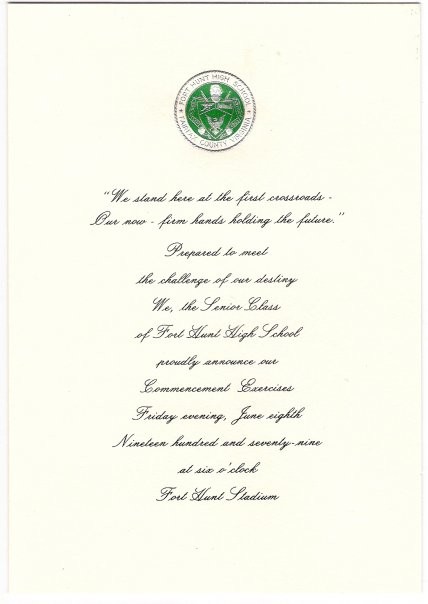 FORT HUNT HIGH SCHOOL
FAIRFAX COUNTY VIRGINIA
"We stand here at the first crossroads -
Our now - firm hands holding the future."
Prepared to meet
the challenge of our destiny
We, the Senior Class
of Fort Hunt High School
proudly announce our
Commencement Exercises
Friday evening, June eighth
Nineteen hundred and seventy-nine
at six o'clock
Fort Hunt Stadium